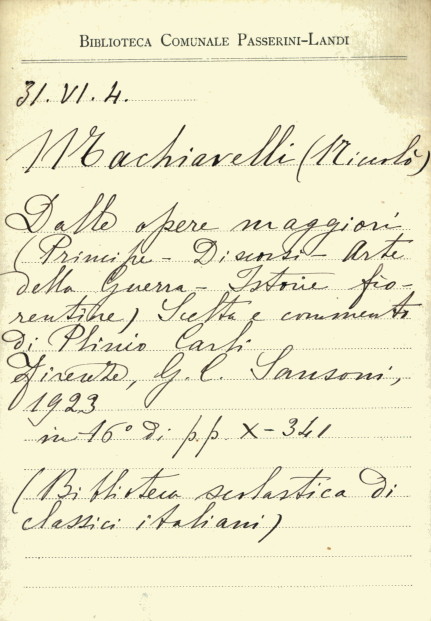 BIBLIOTECA COMUNALE PASSERINI-LANDI
31. VI. 4.
Machiavelli (Niccolò)
Dalle opere maggiori
(Principe - Discorsi - Arte
della Guerra - Istorie fio-
rentine) Scelta e commento
di Plinio Carli
Firenze, G. C. Sansoni,
1923
in 16° di pp. X-341
(Biblioteca scolastica di
classici italiani)